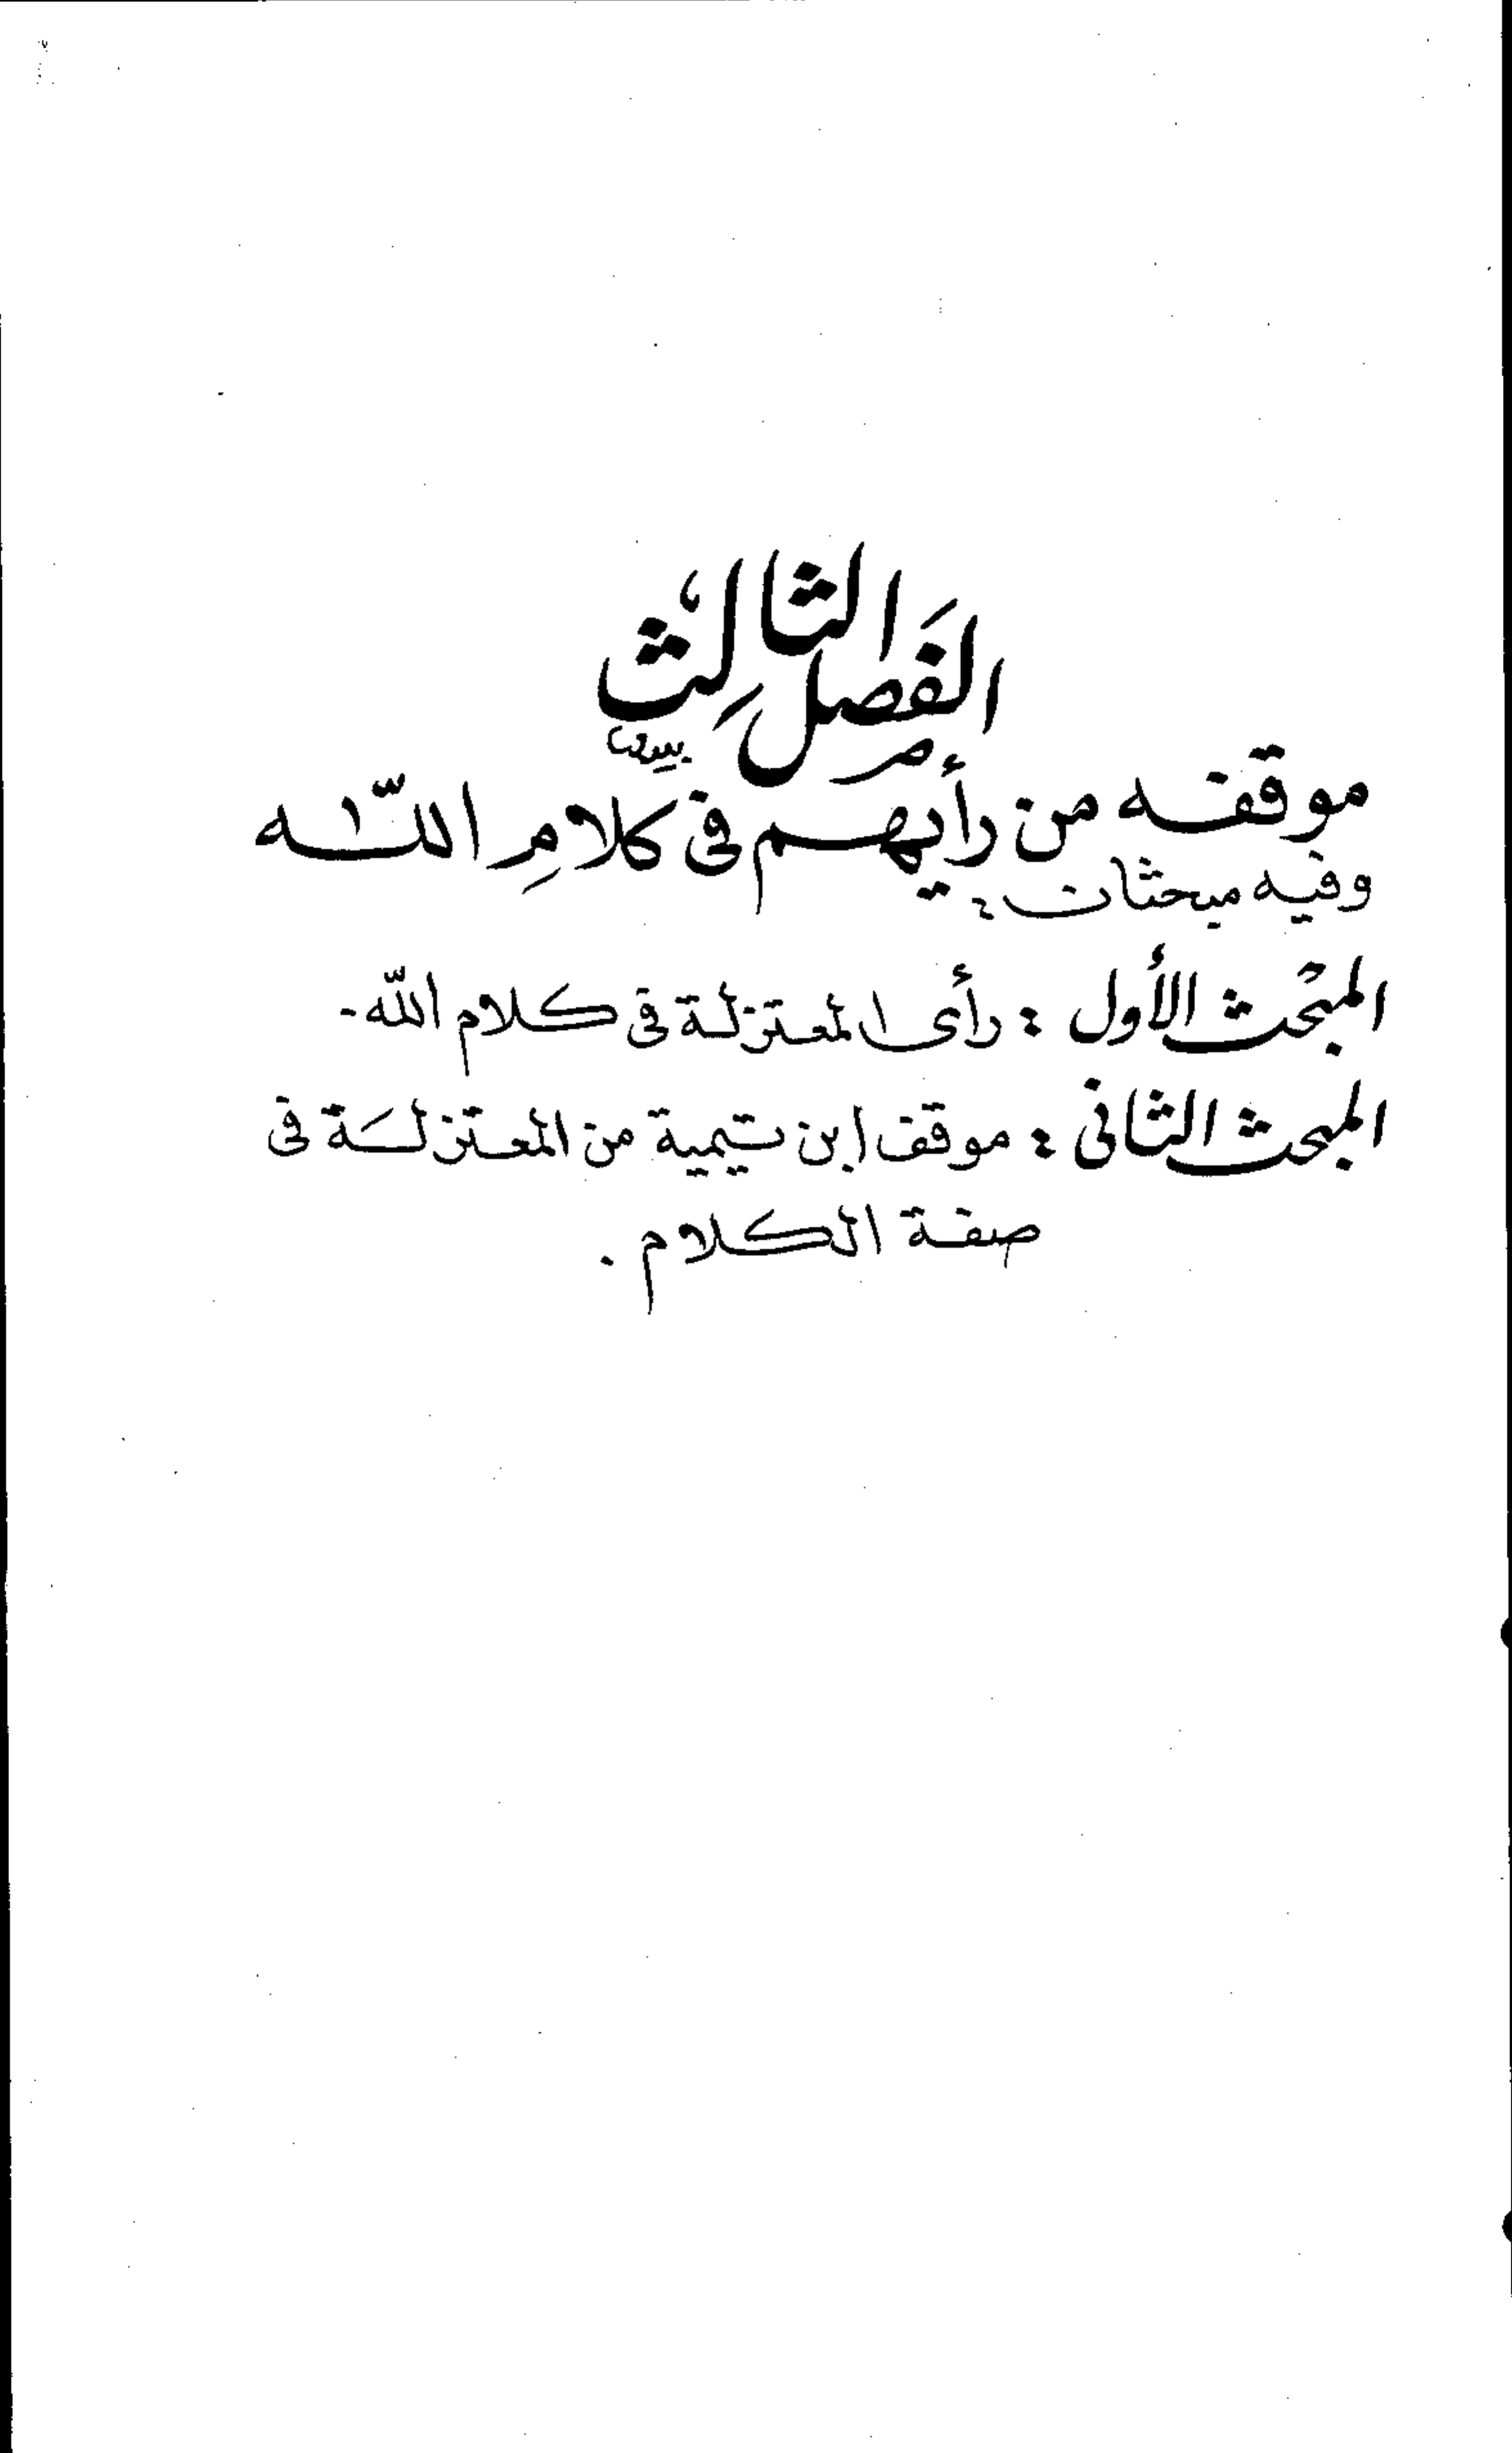 الفَصل الثالِث
موقفه من رأيهم فى كلامِ اللّه
وفيه مبحثان :
المبْحث الأول : رأى المعتزلة فى كلام اللّه .
المبحث الثانى : موقف ابن تيمية من المعتزلَة فى
صفة الكلام .